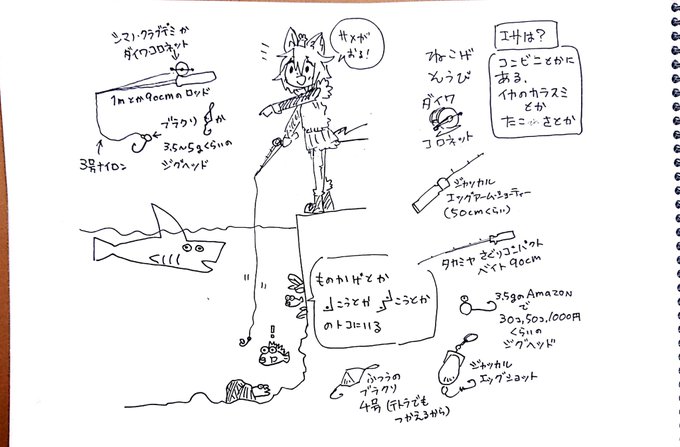 シマノ・クラブデミか
ダイワコロネット
1mとか90cmのロッド
ブラクリ
か
3.5~5gくらいの
ジグヘッド
3号ナイロン
サメが
おる!
!
ねこげ
ダイワ
コロネット
エサは?
コンビニとかに
ある、
イカのカラスミ
とか
さとか
ジャッカル
エッグアームショーティー
(50cmくらい)
タカミヤ さぐりコンパクト
ベイト 90cm
ものかげとか
こうとか こうとか
のトコにいる
3.5gのAmazon
で
30コ,50コ,1000円
くらいの
ジグヘッド
ジャッカル
エッグショット
ふつうの
ブラクリ
4号(テトラでも
つかえるから)